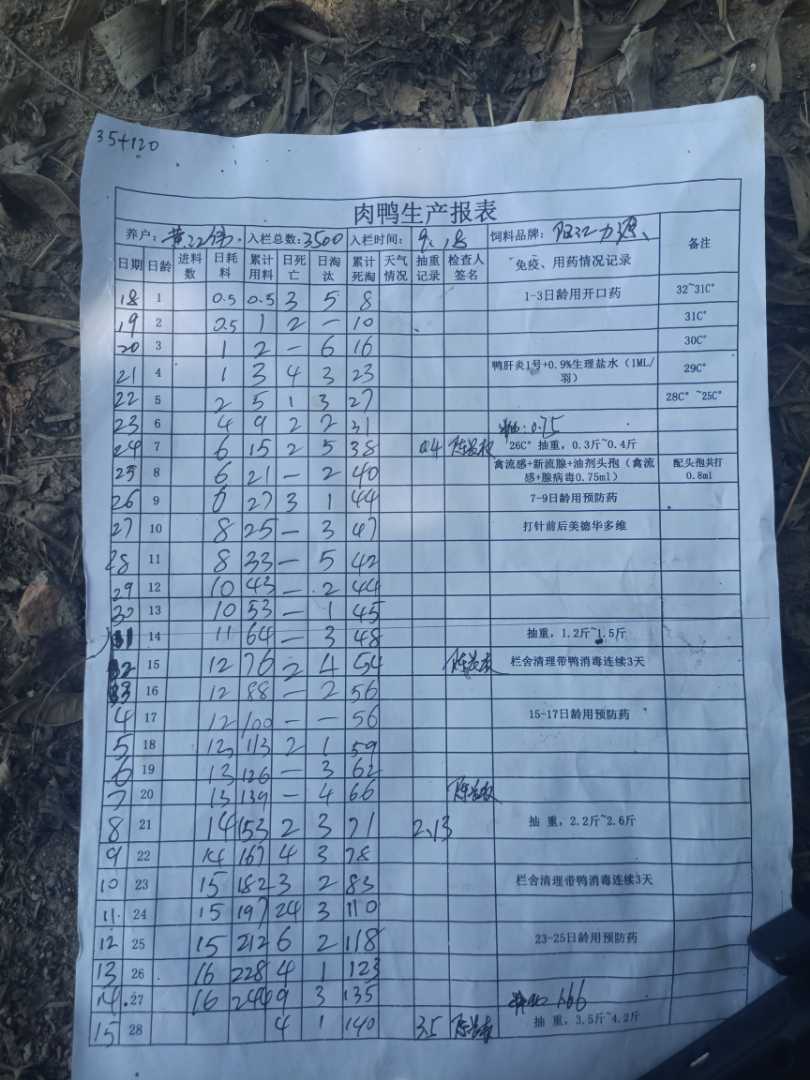 35+120
肉鸭生产报表
养户: 黄 入栏总数:3500 入栏时间: 9.18 饲料品牌: 阳江力源 备注
日期 日龄 进料数 日耗料 累计用料 日死亡 日淘汰 累计死淘 天气情况 抽重记录 检查人签名 免疫、用药情况记录
18 1 0.5 0.5 3 5 8 1-3日龄用开口药 32~31C°
19 2 0.5 1 2 - 10 31C°
20 3 1 2 - 6 16 30C°
21 4 1 3 4 3 23 鸭肝炎1号+0.9%生理盐水(1ML/羽) 29C°
22 5 2 5 1 3 27 28C°~25C°
23 6 4 9 2 2 31 0.75
24 7 6 15 2 5 38 0.4 26C° 抽重,0.3斤~0.4斤
25 8 6 21 - 2 40 禽流感+新流腺+油剂头孢(禽流感+腺病毒0.75ml) 配头孢共打0.8ml
26 9 6 27 3 1 44 7-9日龄用预防药
27 10 8 25 - 3 47 打针前后美德华多维
28 11 8 33 - 5 42
29 12 10 43 - 2 44
30 13 10 53 - 1 45
31 14 11 64 - 3 48 抽重,1.2斤~1.5斤
32 15 12 76 2 4 54 栏舍清理带鸭消毒连续3天
33 16 12 88 - 2 56
4 17 12 100 - - 56 15-17日龄用预防药
5 18 13 113 2 1 59
6 19 13 126 - 3 62
7 20 13 139 - 4 66
8 21 14 153 2 3 71 2.13 抽 重,2.2斤~2.6斤
9 22 14 167 4 3 78
10 23 15 182 3 2 83 栏舍清理带鸭消毒连续3天
11 24 15 197 24 3 110
12 25 15 212 6 2 118 23-25日龄用预防药
13 26 16 228 4 1 123
14 27 16 244 9 3 135 166
15 28 4 1 140 3.5 抽 重,3.5斤~4.2斤